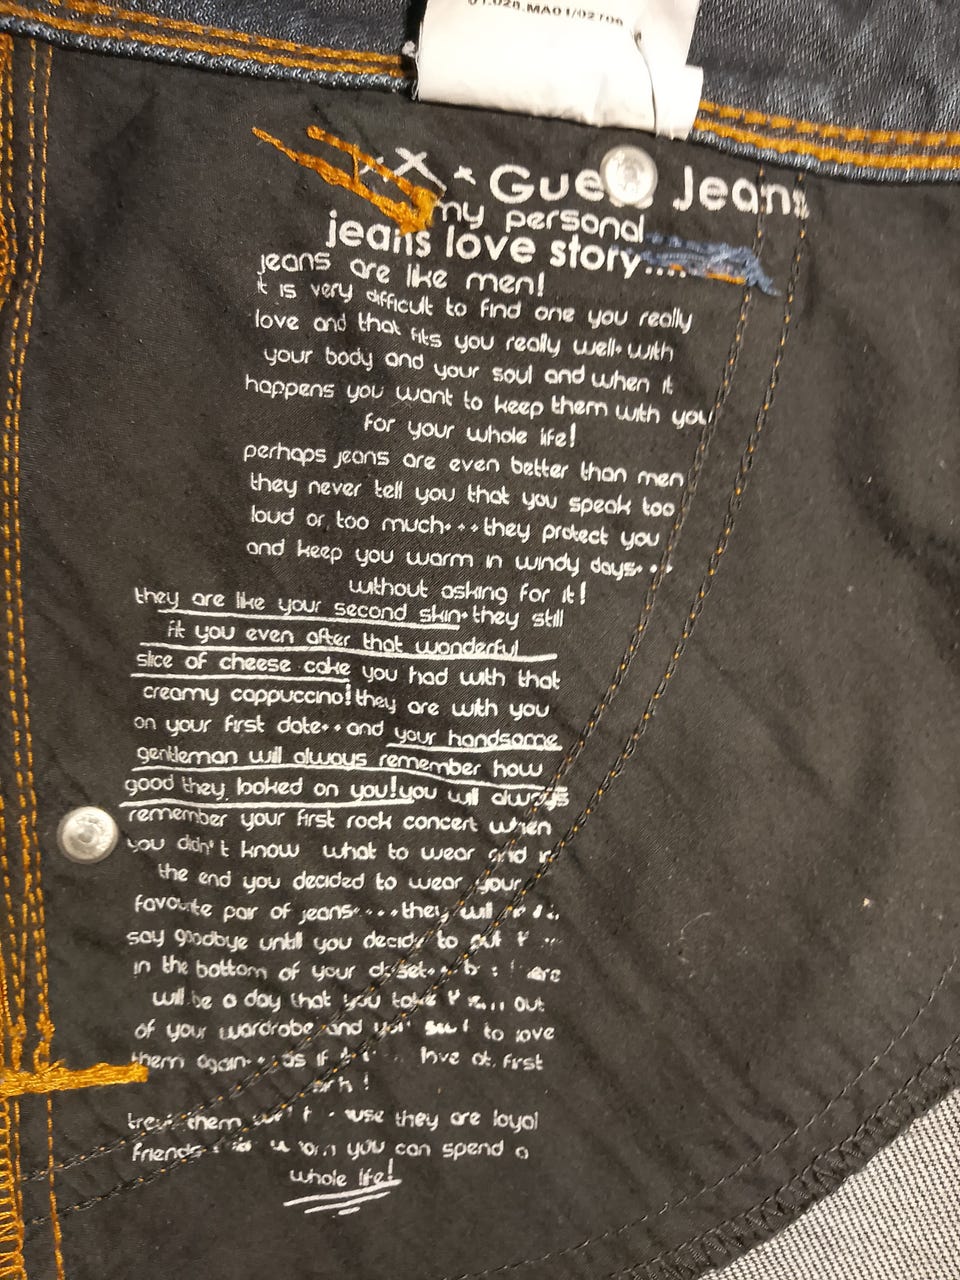 01.028.MA01/02706
Jeans
my personal
jeans love story....
jeans are like men!
it is very difficult to find one you really
love and that fits you really well. with
your body and your soul and when it
happens you want to keep them with you
for your whole life!
perhaps jeans are even better than men
they never tell you that you speak too
loud or too much...they protect you
and keep you warm in windy days...
without asking for it!
they are like your second skin.they still
fit you even after that wonderful
slice of cheese cake you had with that
creamy cappuccino!they are with you
on your first date..and your handsome
gentleman will always remember how
good they looked on you!you will always
remember your first rock concert when
you didn't know what to wear and in
the end you decided to wear your
favourite pair of jeans....they will
say goodbye until you decide to put
in the bottom of your closet..
will be a day that you take them out
of your wardrobe and you to love
them again...as if love at first
treat them they are loyal
friends you can spend a
whole life!